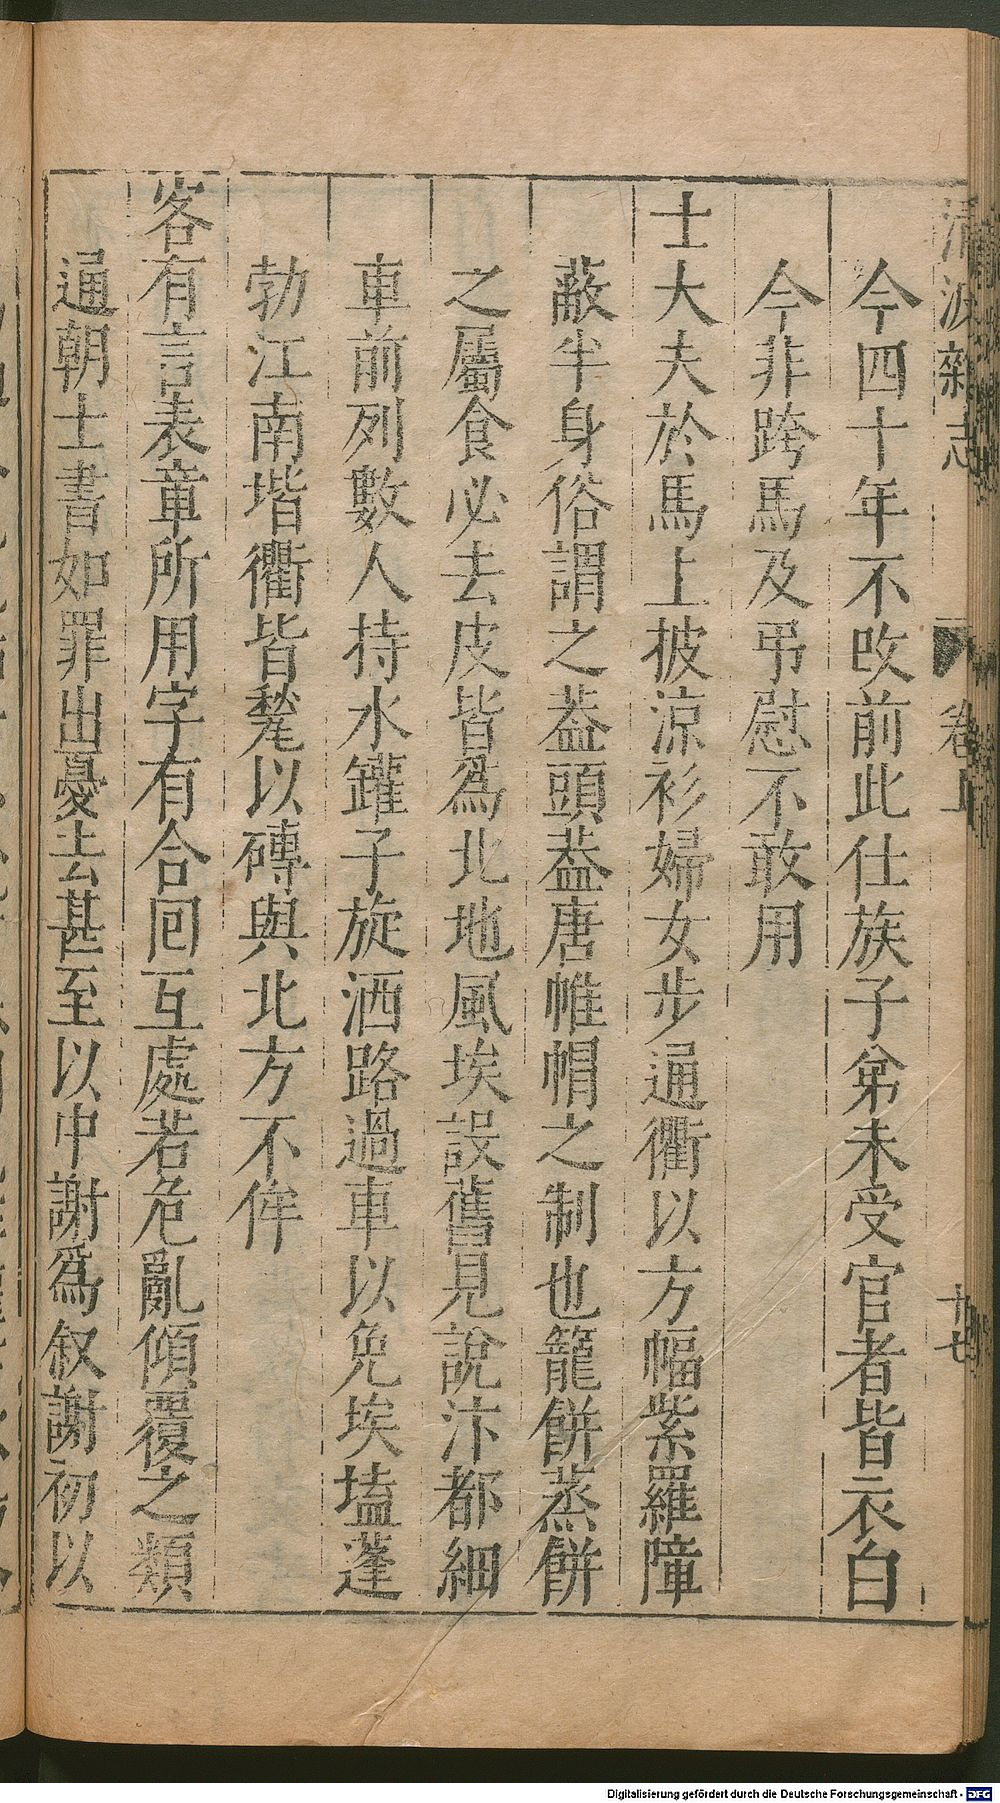 清波雜志
卷上
十七
今四十年不改前此仕族子弟未受官者皆衣白
今非跨馬及弔慰不敢用
士大夫於馬上披涼衫婦女步通衢以方幅紫羅障
蔽半身俗謂之蓋頭蓋唐帷帽之制也籠餅蒸餅
之屬食必去皮皆爲北地風埃設舊見說汴都細
車前列數人持水罐子旋洒路過車以免埃壒蓬
勃江南堦衢皆甃以磚與北方不侔
客有言表章所用字有合回互處若危亂傾覆之類
通朝士書如罪出憂去甚至以中謝爲叙謝初以
Digitalisierung gefördert durch die Deutsche Forschungsgemeinschaft - DFG